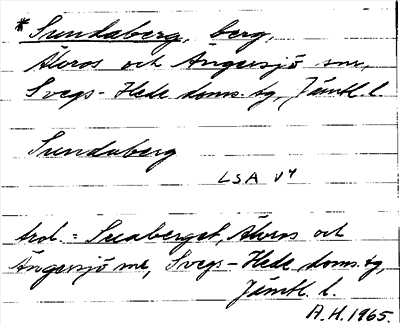 * Sundaberg, berg,
Älvros och Ängersjö snr,
Svegs-Hede doms.tg, Jämtl. l.
Sundaberg
LSA V4
trol. = Sucaberget, Älvros och
Ängersjö snr, Svegs-Hede doms.tg,
Jämtl. l.
A.H. 1965.